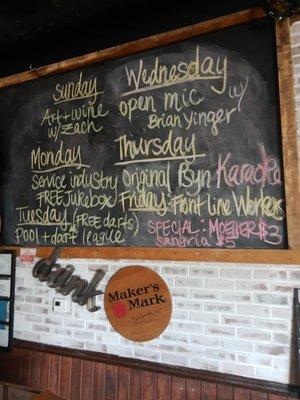 Sunday
Art + wine
w/ Zach
Monday
Service industry
FREE Jukebox
Tuesday (FREE darts)
POOL + dart league
Wednesday
open mic w/
Brian Yinger
Thursday
Original Byn Karaoke
Friday: Front Line Workers
SPECIAL: MOELLER $3
sangria $5
drink
Maker's
Mark